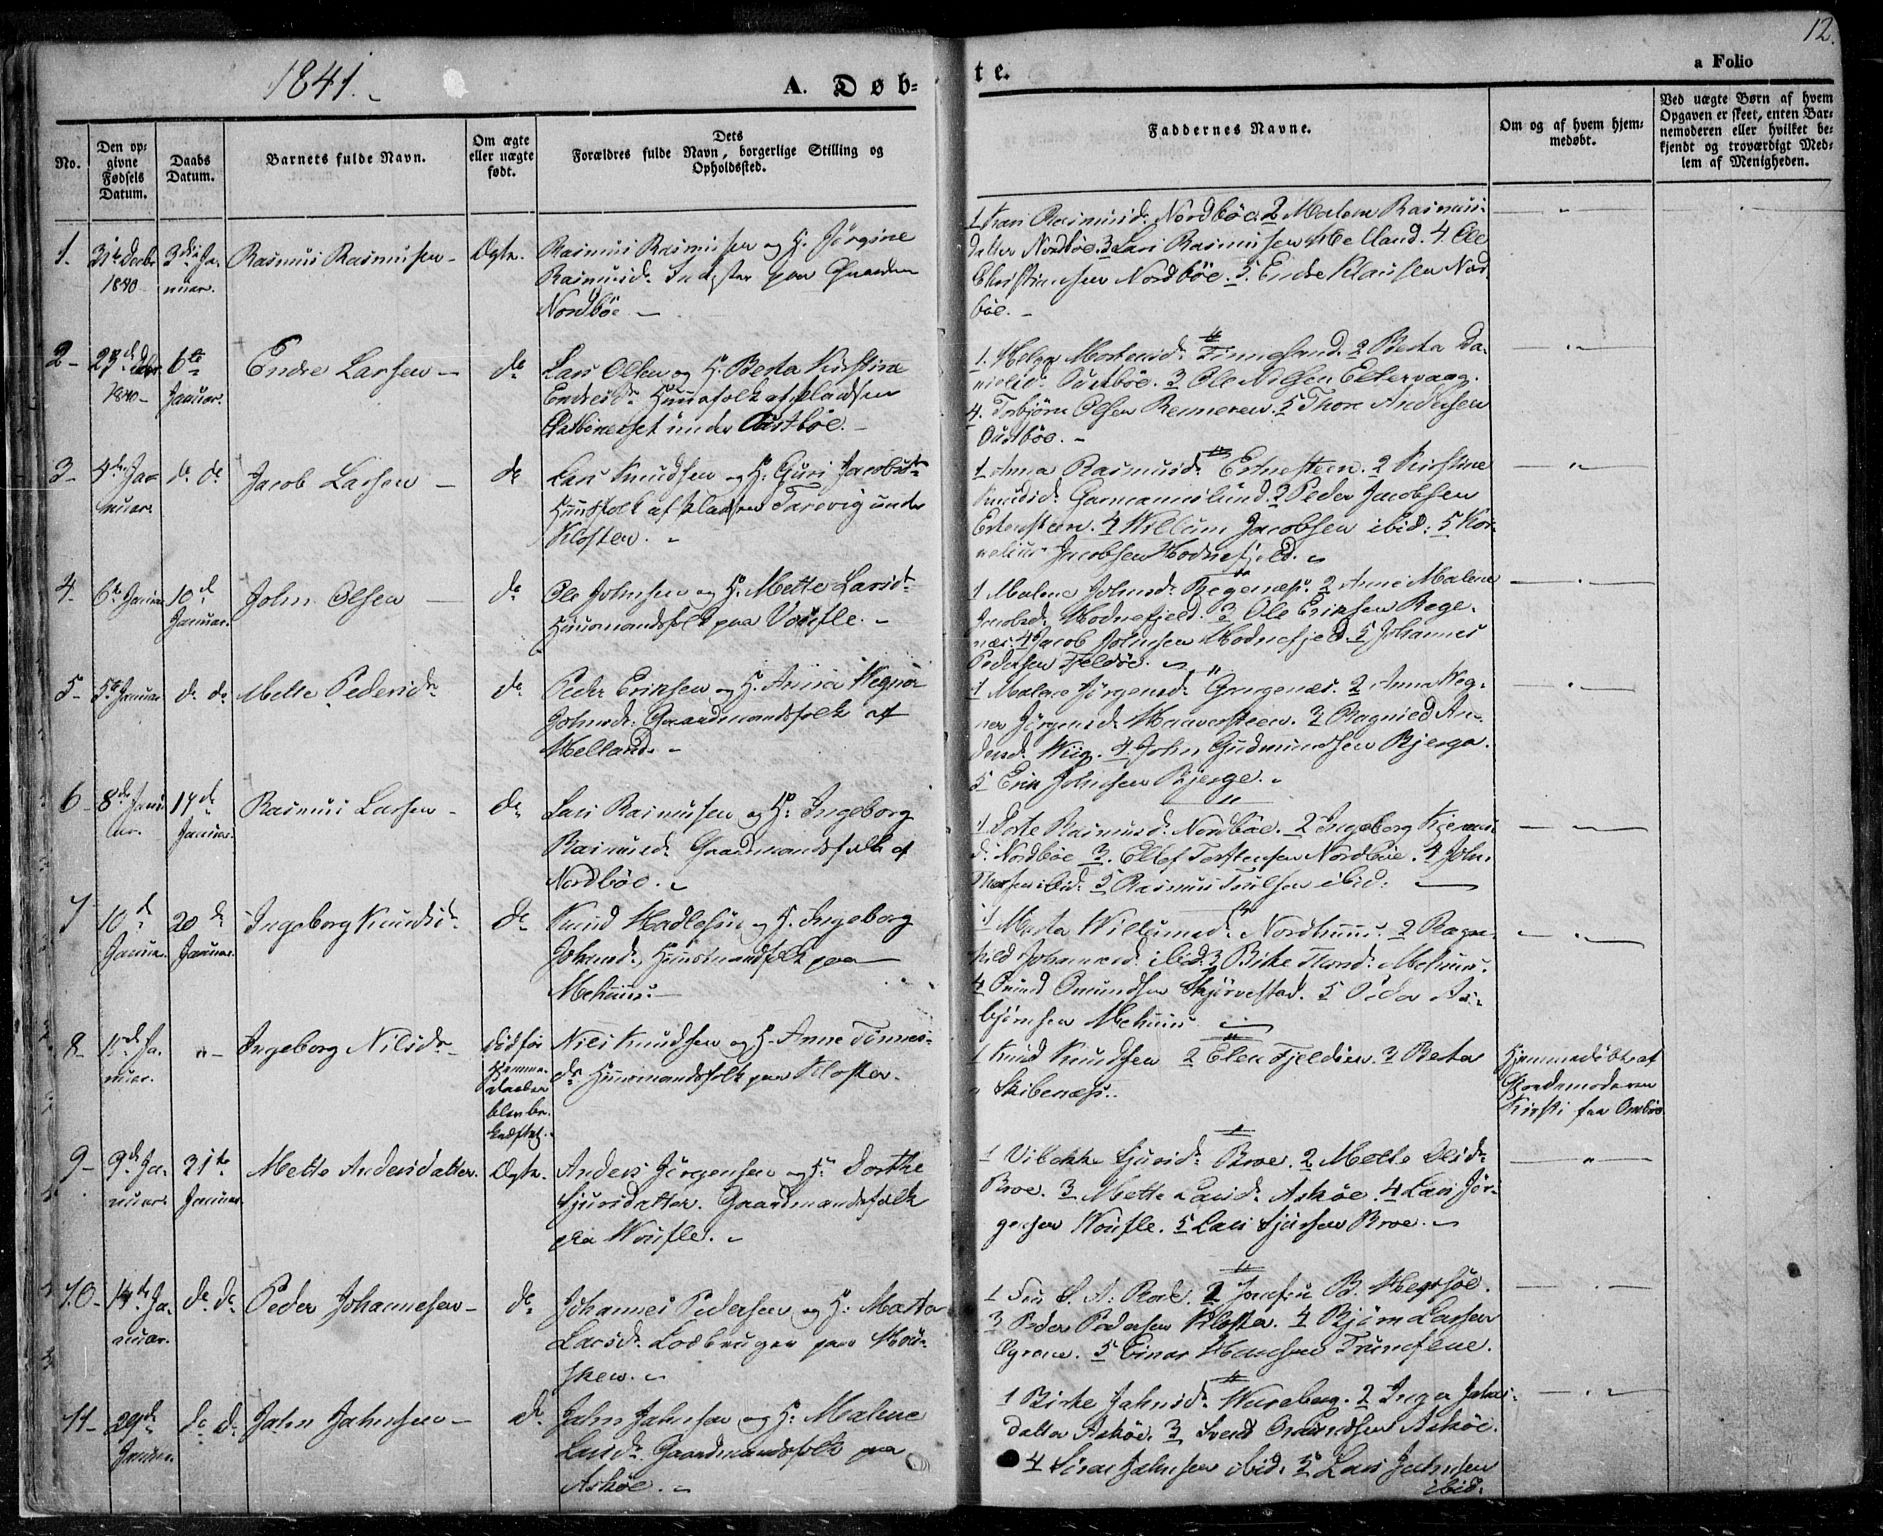 12.
1841.
A. Døb-
te.
a Folio
No.
Den op-
givne
Fødsels
Datum.
Daabs
Datum.
Barnets fulde Navn.
Om ægte
eller uægte
født.
Dets
Forældres fulde Navn, borgerlige Stilling og
Opholdssted.
Faddernes Navne.
Om og af hvem hjem-
medøbt.
Ved uægte Børn af hvem
Opgaven er skeet, enten Bar-
nemoderen eller hvilket be-
kjendt og troværdigt Med-
lem af Menigheden.
1. 31te Decbr 1840 3die Januar. Rasmus Rasmussen Ægte.
Rasmus Rasmussen og H. Jörgine
Rasmusd. Inderster paa Gaarden
Nordböe
1 Kari Rasmusd. Nordböe. 2 Malene Rasmus-
datter Nordböe. 3 Lars Rasmussen Helland. 4 Ole
Christiansen Nordböe. 5 Endre Klausen Nord-
böe.
2 23de Decbr 1840 6te Januar. Endre Larsen do
Lars Olsen og H. Berta Kirstine
Endresdr. Huusfolk af Pladsen
under Oustböe.
1. Helga Mortensd. Finnesand. 2 Berta Da-
nielsd. Oustböe. 3 Ole Nielsen Eltervaag.
4. Torbjörn Olsen Renneren. 5 Thore Andersen
Oustböe.
3 4de Januar. do do Jacob Larsen do
Lars Knudsen og H. Guri Jacobsdr
Huusfolk af Pladsen Tarevig under
Kloster.
1 Anna Rasmusd. Erhesteen. 2 Kirstine
Knudsd. Garmannslund. 3 Peder Jacobsen
4 Willum Jacobsen ibid: 5 Kor-
nelius Jacobsen Hodnefjeld.
4 6te Januar 10d Januar. John Olsen do
Ole Johnsen og H. Mette Larsd.
Huusmandsfolk paa Voufle.
1 Malene Johnsd. Regenæs. 2 Anne Malene
Jacobsd. Hodnefjeld. 3 Ole Eriksen Rege-
næs. 4 Jacob Johnsen Hodnefjeld. 5 Johannes
Pedersen Fjeldöe.
5 5te Januar do do Mette Pedersdr do
Peder Eriksen og H. Anna Regna
Johnsd. Gaardmandsfolk af
Helland.
1 Malene Jörgensd. 2 Anna Reg-
na Jörgensd. Haaversteen. 3 Ragnild An-
dersd. Wiig. 4. John Gudmundsen Bjerga.
5 Erik Johnsen Bjerge.
6 8de Januar. 14de Januar. Rasmus Larsen do
Lars Rasmussen og H. Ingeborg
Rasmusd. Gaardmandsfolk af
Nordböe.
1 Dorte Rasmusd. Nordböe. 2 Ingeborg
d. Nordböe 3. Ellef Torstensen Nordböe. 4 John
ibid. 5 Rasmus ibid.
7 10d Januar. 20de Januar. Ingeborg Knudsd. do
Knud Madlesen og H. Ingeborg
Johansd. Huusmandsfolk paa
Mehuus.
1 Marta Willumsd. Nordhuus. 2 Ragn-
hild Johannesd. ibid. 3 Birte Mehuus.
4 Omundsen Skjörvestad. 5 Peder As-
björnsen Mehuus
8 15de Januar. " Ingeborg Nilsdr
Död för
Hjemme-
daaben
blev be-
kræftet.
Nils Knudsen og H. Anne Tönnes-
dr. Huusmandsfolk paa Kloster.
1 Knud Knudsen 2 Elen Fjeldöen. 3 Berta
Skibenæs.
Hjemmedöbt af
Gjordemoderen
Kirsti fra Ombo.
9 9de Januar. 31te Januar. Mette Andersdatter. Ægte.
Anders Jörgensen og H. Dorthe
Sjursdatter. Gaardmandsfolk
paa Voufle.
1 Vibekke Sjursd. Broe. 2 Mette Olsd.
Broe. 3 Mette Larsd. Asköe. 4 Lars Jör-
gensen Voufle. 5 Lars Sjursen Broe.
10 14de Januar. do do Peder Johannesen do
Johannes Pedersen og H. Marta
Larsd. Lodbruger paa Hou-
sken.
1 Fru S. A. 2 Jomfru B.
3 Peder Pedersen Kloster. 4 Björn Larsen
5 Einar Hansen
11 29de Januar do do Jahn Jahnsen do
Jahn Jahnsen og H. Malene
Larsd. Gaardmandsfolk paa
Asköe.
1 Birte Jahnsd. 2 Inger Jahns-
datter Asköe. 3 Svend Omundsen Asköe.
4 Jahnsen ibid. 5 Lars Jahnsen
ibid.